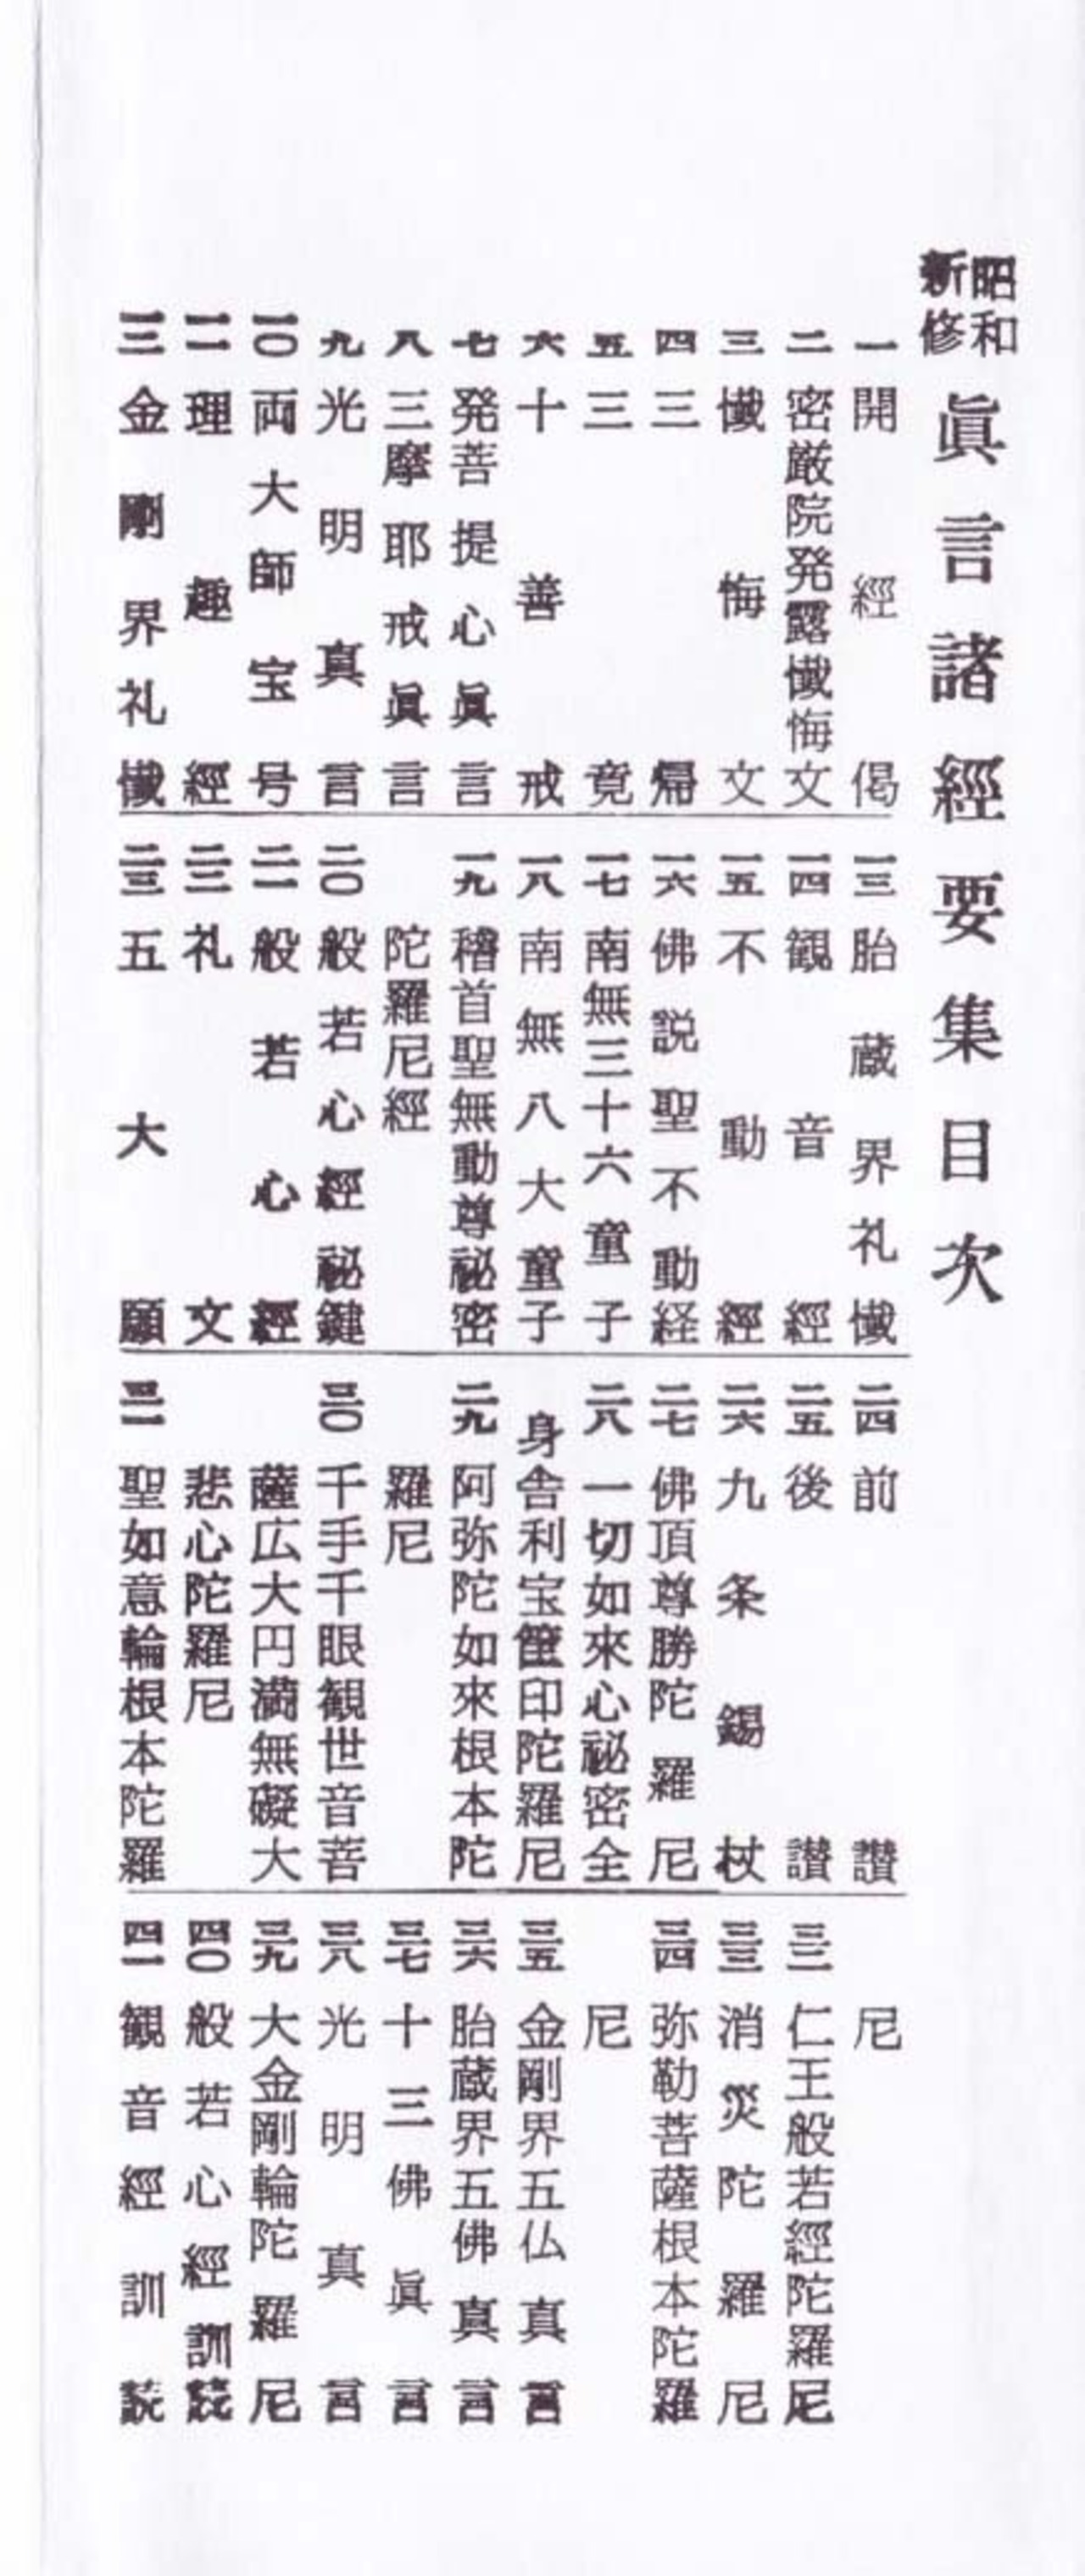 昭和
新修
眞言諸經要集目次
一 開經偈
二 密厳院発露懴悔文
三 懴悔文
四 三帰
五 三竟
六 十善戒
七 発菩提心眞言
八 三摩耶戒眞言
九 光明真言
一〇 両大師宝号
一一 理趣經
一二 金剛界礼懴
一三 胎蔵界礼懴
一四 観音經
一五 不動經
一六 佛説聖不動経
一七 南無三十六童子
一八 南無八大童子
一九 稽首聖無動尊祕密
陀羅尼經
二〇 般若心經祕鍵
二一 般若心經
二二 礼文
二三 五大願
二四 前讃
二五 後讃
二六 九条錫杖
二七 佛頂尊勝陀羅尼
二八 一切如來心祕密全
身舎利宝篋印陀羅尼
二九 阿弥陀如來根本陀
羅尼
三〇 千手千眼観世音菩
薩広大円満無礙大
悲心陀羅尼
三一 聖如意輪根本陀羅
尼
三二 仁王般若經陀羅尼
三三 消災陀羅尼
三四 弥勒菩薩根本陀羅
尼
三五 金剛界五仏真言
三六 胎蔵界五佛真言
三七 十三佛眞言
三八 光明真言
三九 大金剛輪陀羅尼
四〇 般若心經訓読
四一 観音經訓読